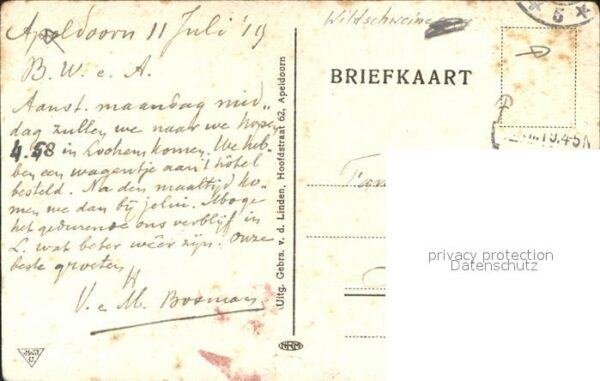 Apeldoorn 11 Juli '19
B. W. e. A.
Aanst. maandag mid-
dag zullen we naar we hopen
4.58 in Lochem komen. We heb-
ben een wagentje aan 't hôtel
besteld. Na den maaltijd ko-
men we dan bij jelui. Moge
het gedurende ons verblijf in
L. wat beter wêer zijn. Onze
beste groeten
V. e M. Bosman
Wildschweine
BRIEFKAART
Uitg. Gebrs. v. d. Linden, Hoofdstraat 62, Apeldoorn
5
privacy protection
Datenschutz